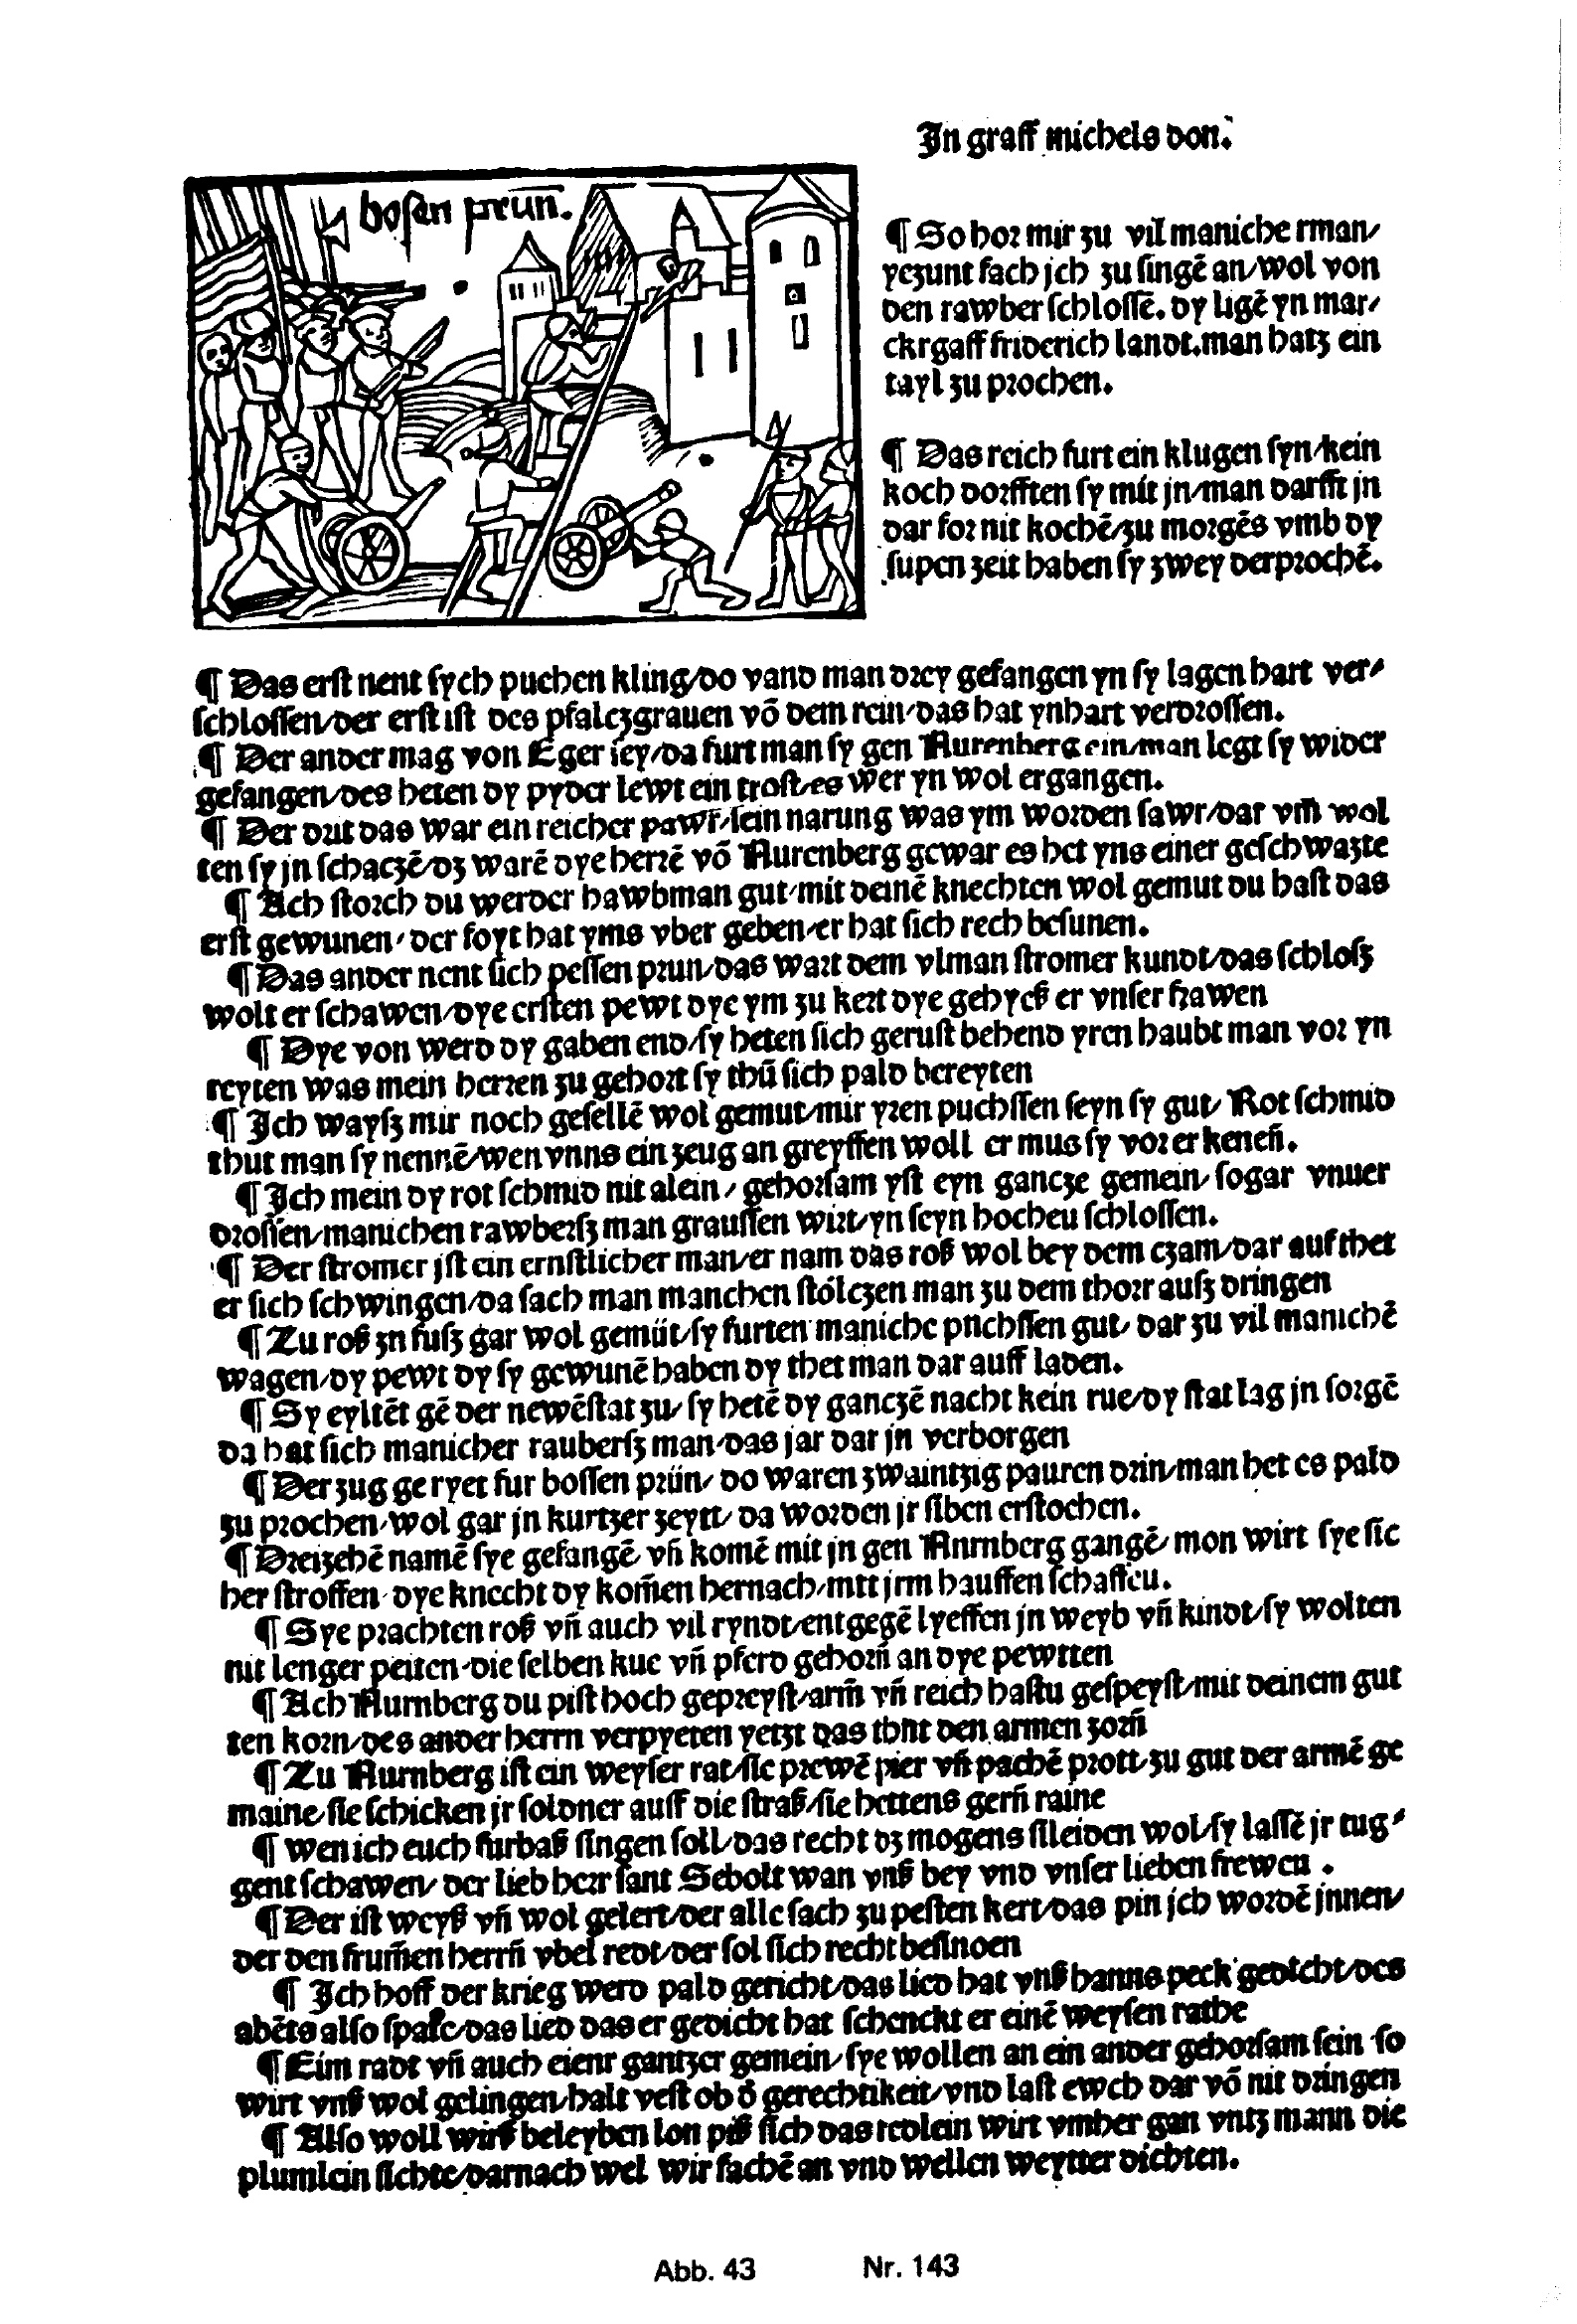 In graff michels don.
bosen prun̄.
¶ So hor mir zu vil maniche rman/
yezunt fach jch zu singē an/wol von
den rawber schlossē. dy ligē yn mar/
ckrgaff friderich landt.man hatz ein
tayl zu prochen.
¶ Das reich furt ein klugen syn/kein
koch dorfften sy mit jn/man darfft jn
dar for nit kochē/zu morgēs vmb dy
supen zeit haben sy zwey derprochē.
¶ Das erst nent sych puchen kling/do vand man drey gefangen yn sy lagen hart ver/
schlossen/der erst ist des pfalczgrauen vō dem rein/das hat ynhart verdrossen.
¶ Der ander mag von Eger sey/da furt man sy gen Nurenberg ein/man legt sy wider
gefangen/des heten dy pyder lewt ein trost/es wer yn wol ergangen.
¶ Der drit das war ein reicher pawr/sein narung was ym worden sawr/dar vm̄ wol
ten sy jn schaczē/dz warē dye herrē vō Nurenberg gewar es het yns einer geschwazte
¶ Ach storch du werder hawbman gut/mit deinē knechten wol gemut du hast das
erst gewunen/der foyt hat yms vber geben/er hat sich rech besunen.
¶ Das ander nent sich pessen prun/das wart dem vlman stromer kundt/das schlosz
wolt er schawen/dye ersten pewt dye ym zu kert dye gehyeß er vnser frawen
¶ Dye von werd dy gaben end/sy heten sich gerust behend yren haubt man vor yn
reyten was mein herren zu gehort sy thū sich pald bereyten
¶ Jch waysz mir noch gesellē wol gemut/mir yren puchssen seyn sy gut/ Rot schmid
thut man sy nennē/wen vnns ein zeug an greyffen woll er mus sy vor er kenen̄.
¶ Jch mein dy rot schmid nit alein/ gehorsam yst eyn gancze gemein/ sogar vnuer
drossen/manichen rawbersz man graussen wirt/yn seyn hocheu schlossen.
¶ Der stromer jst ein ernstlicher man/er nam das roß wol bey dem czam/dar auf thet
er sich schwingen/da sach man manchen stólczen man zu dem thorr ausz dringen
¶ Zu roß zn fusz gar wol gemüt/sy furten maniche pnchssen gut/ dar zu vil manichē
wagen/dy pewt dy sy gewunē haben dy thet man dar auff laden.
¶ Sy eyltēt gē der newēstat zu/ sy hetē dy ganczē nacht kein rue/dy stat lag jn sorgē
da hat sich manicher raubersz man/das jar dar jn verborgen
¶ Der zug ge ryet fur bossen prün/ do waren zwaintzig pauren drin/man het es pald
zu prochen/wol gar jn kurtzer zeytt/ da worden jr siben erstochen.
¶ Dreizehē namē sye gefangē/ vn̄ komē mit jn gen Nnrnberg gangē/ mon wirt sye sic
her stroffen/ dye knecht dy kom̄en hernach/mtt jrm hauffen schaffeu.
¶ Sye prachten roß vn̄ auch vil ryndt/entgegē lyeffen jn weyb vn̄ kindt/sy wolten
nit lenger peiten/die selben kue vn̄ pferd gehorn̄ an dye pewtten
¶ Ach Nurnberg du pist hoch gepreyst/arm̄ vn̄ reich hastu gespeyst/mit deinem gut
ten korn/des ander herrn verpyeten yetzt das thnt den armen zorn̄
¶ Zu Nurnberg ist ein weyser rat/sie prewē pier vn̄ pachē prott/zu gut der armē ge
maine/sie schicken jr soldner auff die straß/sie hettens gern̄ raine
¶ wen ich euch furbaß singen soll/das recht dz mogens sileiden wol/sy lassē jr tug/
gent schawen/ der lieb herr sant Sebolt wan vnß bey vnd vnser lieben frewen .
¶ Der ist weyß vn̄ wol gelert/der alle sach zu pesten kert/das pin jch wordē jnnen/
der den frum̄en herrn̄ vbel redt/der sol sich recht besinden
¶ Jch hoff der krieg werd pald gericht/das lied hat vnß hanns peck gedicht/des
abēts also spate/das lied das er gedicht hat schenckt er einē weysen rathe
¶ Eim radt vn̄ auch eienr gantzer gemein/ sye wollen an ein ander gehorsam sein so
wirt vnß wol gelingen/halt vest ob d̄ gerechtikeit/vnd last ewch dar vō nit dringen
¶ Also woll wirß beleyben lon piß sich das redlein wirt vmher gan vntz mann die
plumlein sichte/darnach wel wir fachē an vnd wellen weytter dichten.
Abb. 43 Nr. 143